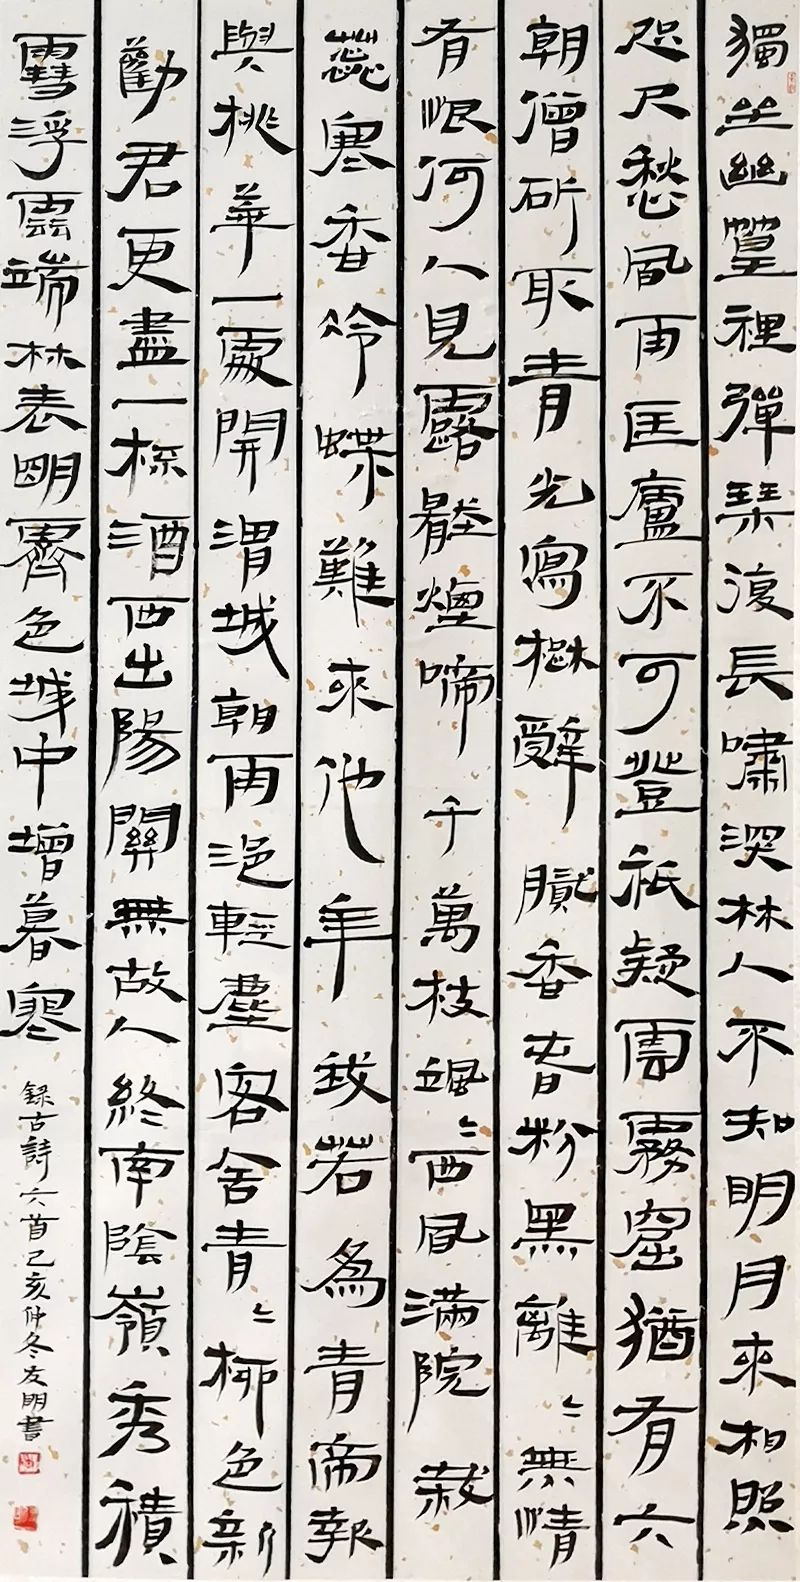 獨坐幽篁裡彈琴復長嘯深林人不知明月來相照
咫尺愁風雨匡廬不可登祇疑雲霧窟猶有六
朝僧斫取青光寫楚辭膩香春粉黑離〻無情
有恨何人見露壓煙啼千萬枝颯〻西風滿院栽
蕊寒香冷蝶難來他年我若為青帝報
與桃華一處開渭城朝雨浥輕塵客舍青〻柳色新
勸君更盡一杯酒西出陽關無故人終南陰嶺秀積
雪浮雲端林表明霽色城中增暮寒
錄古詩六首己亥仲冬友明書